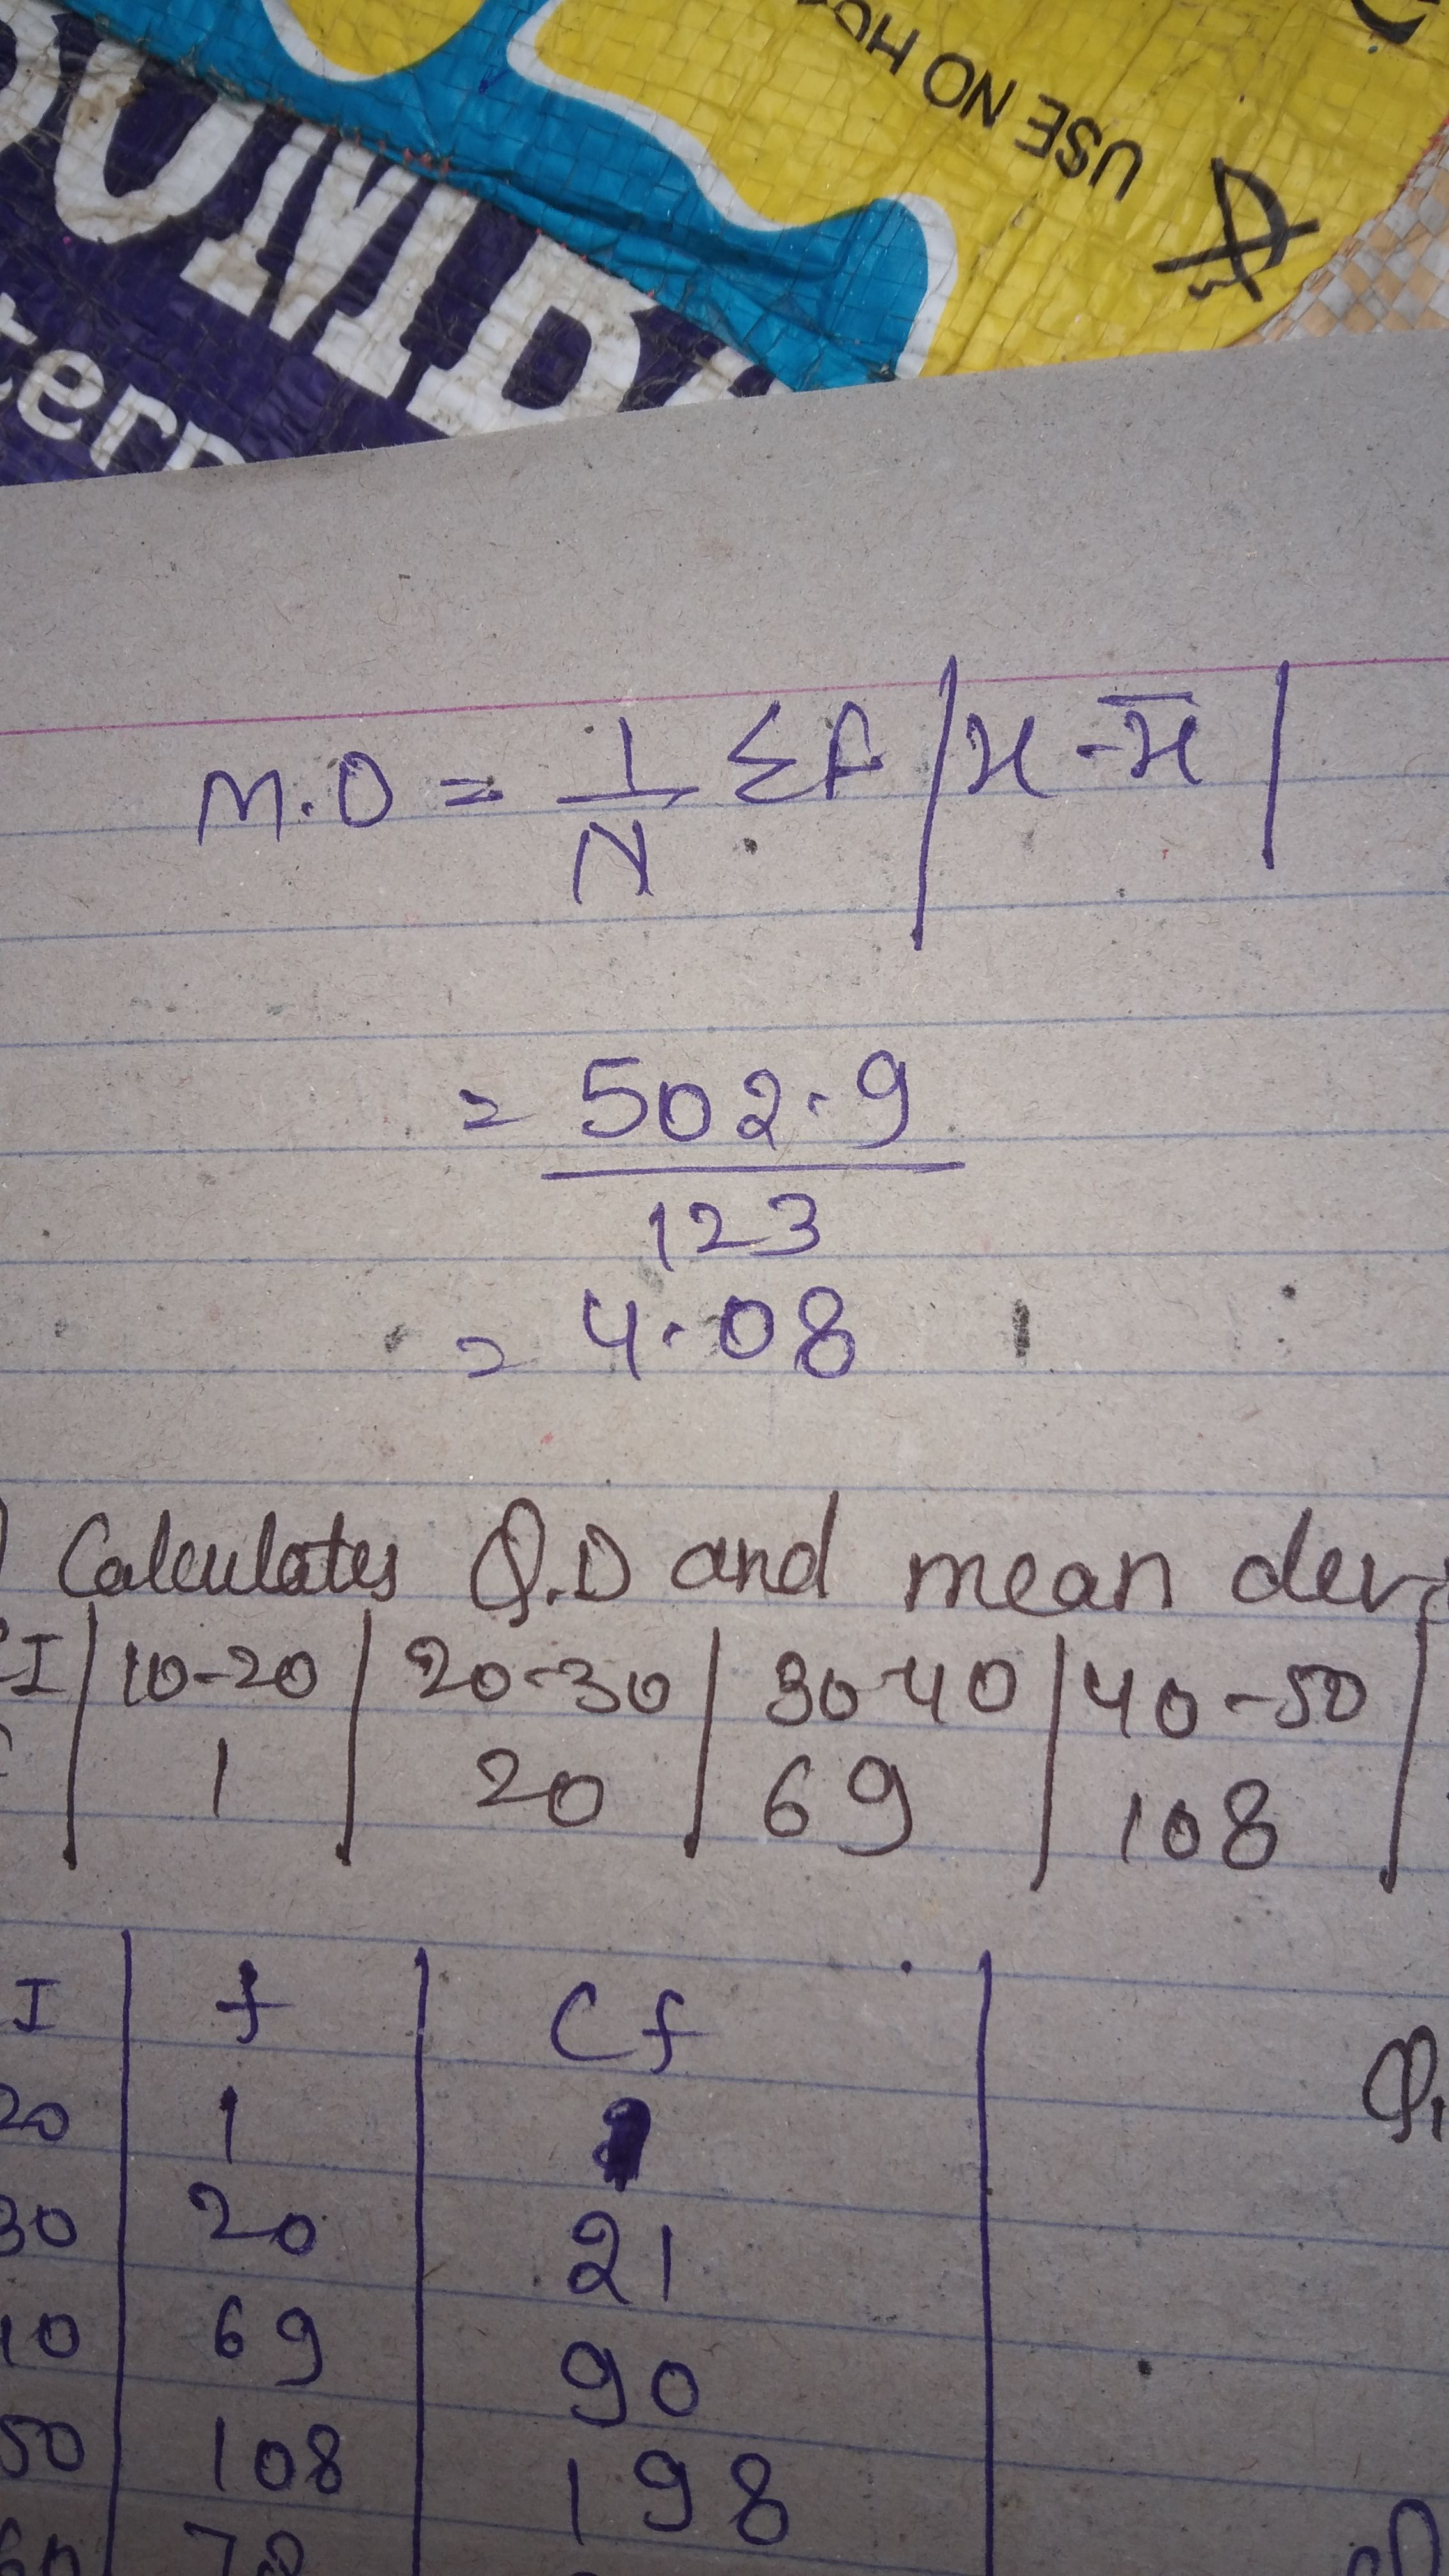 USE NO HO
OMB
tern
M.D = 1/N Σf |x - x̄|
= 502.9
123
= 4.08
Calculates Q.D and mean dev
I | 10-20 | 20-30 | 30-40 | 40-50 |
| 1 | 20 | 69 | 108 |
I | f | Cf |
20 | 1 | 1 | Q1
30 | 20 | 21
40 | 69 | 90
50 | 108 | 198
60 | 78